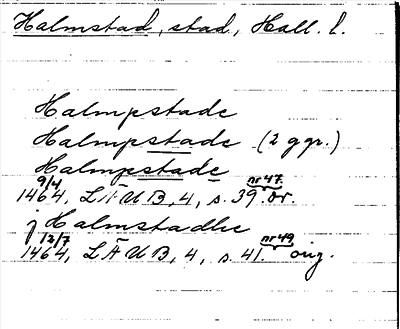 Halmstad, stad, Hall. l.
Halmpstade
Halmpstade (2 ggr.)
Halmpstade
9/4 1464, LÄUB, 4, s. 39. nr 47. or.
j Halmstadhe
12/7 1464, LÄUB, 4, s. 41. nr 49 orig.